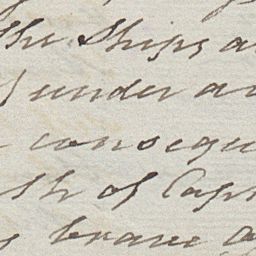 the Ships a
under a
consequ
th of Cap
brave